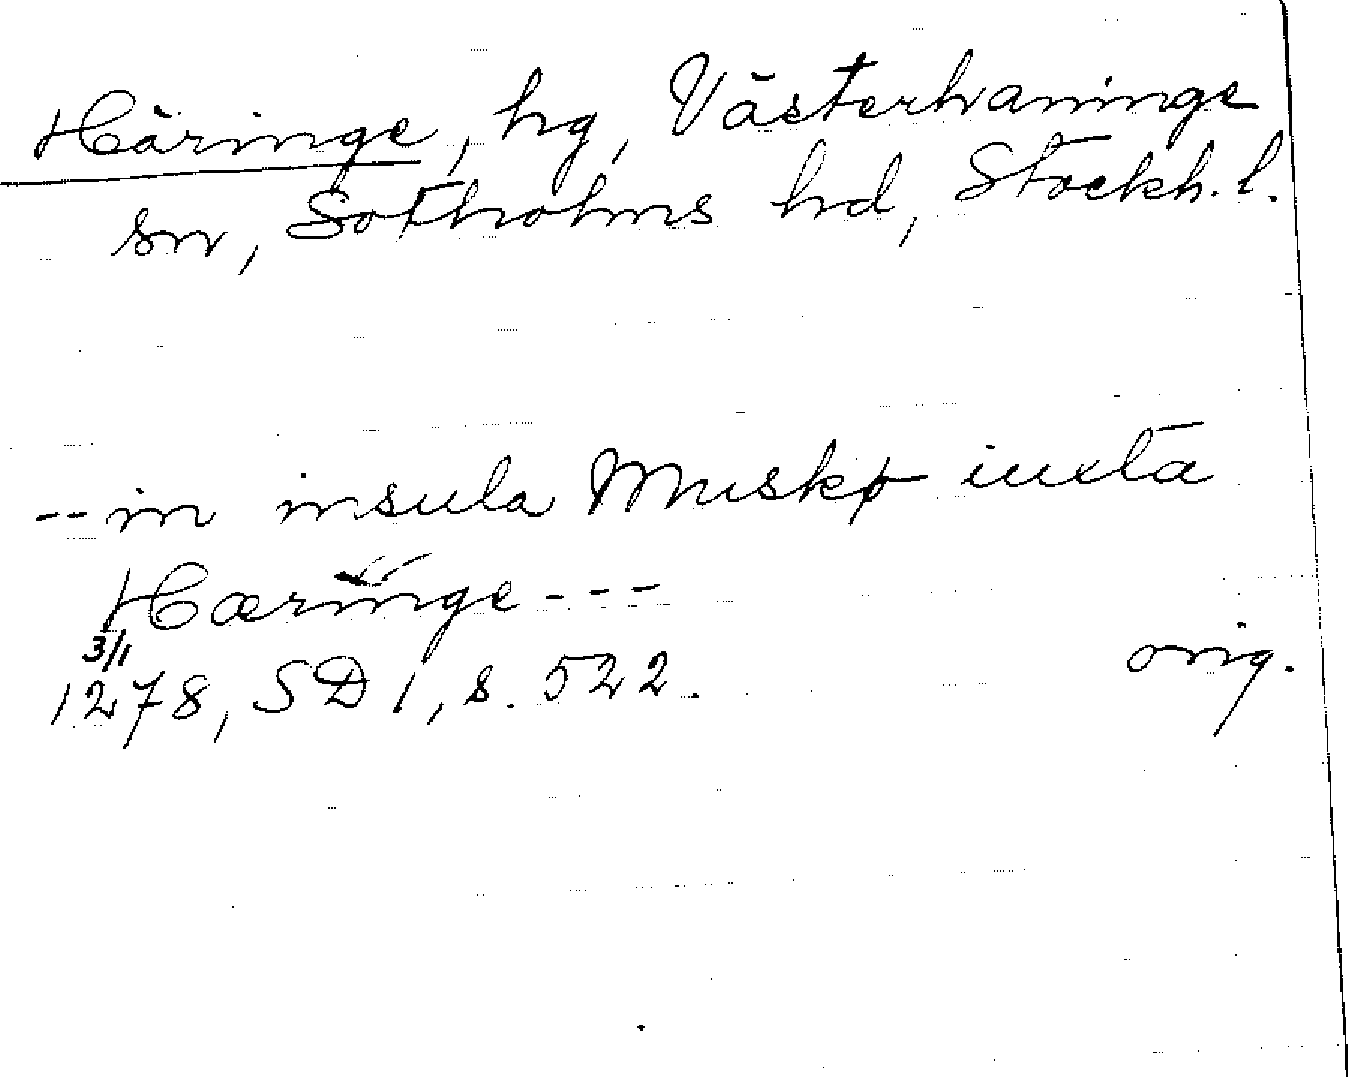 Häringe, hg, Västerhaninge
sn, Sotholms hd, Stockh. l.
-- in insula Muskø iuxta
Hæringe ---
3/1
1278, SD 1, s. 522. orig.